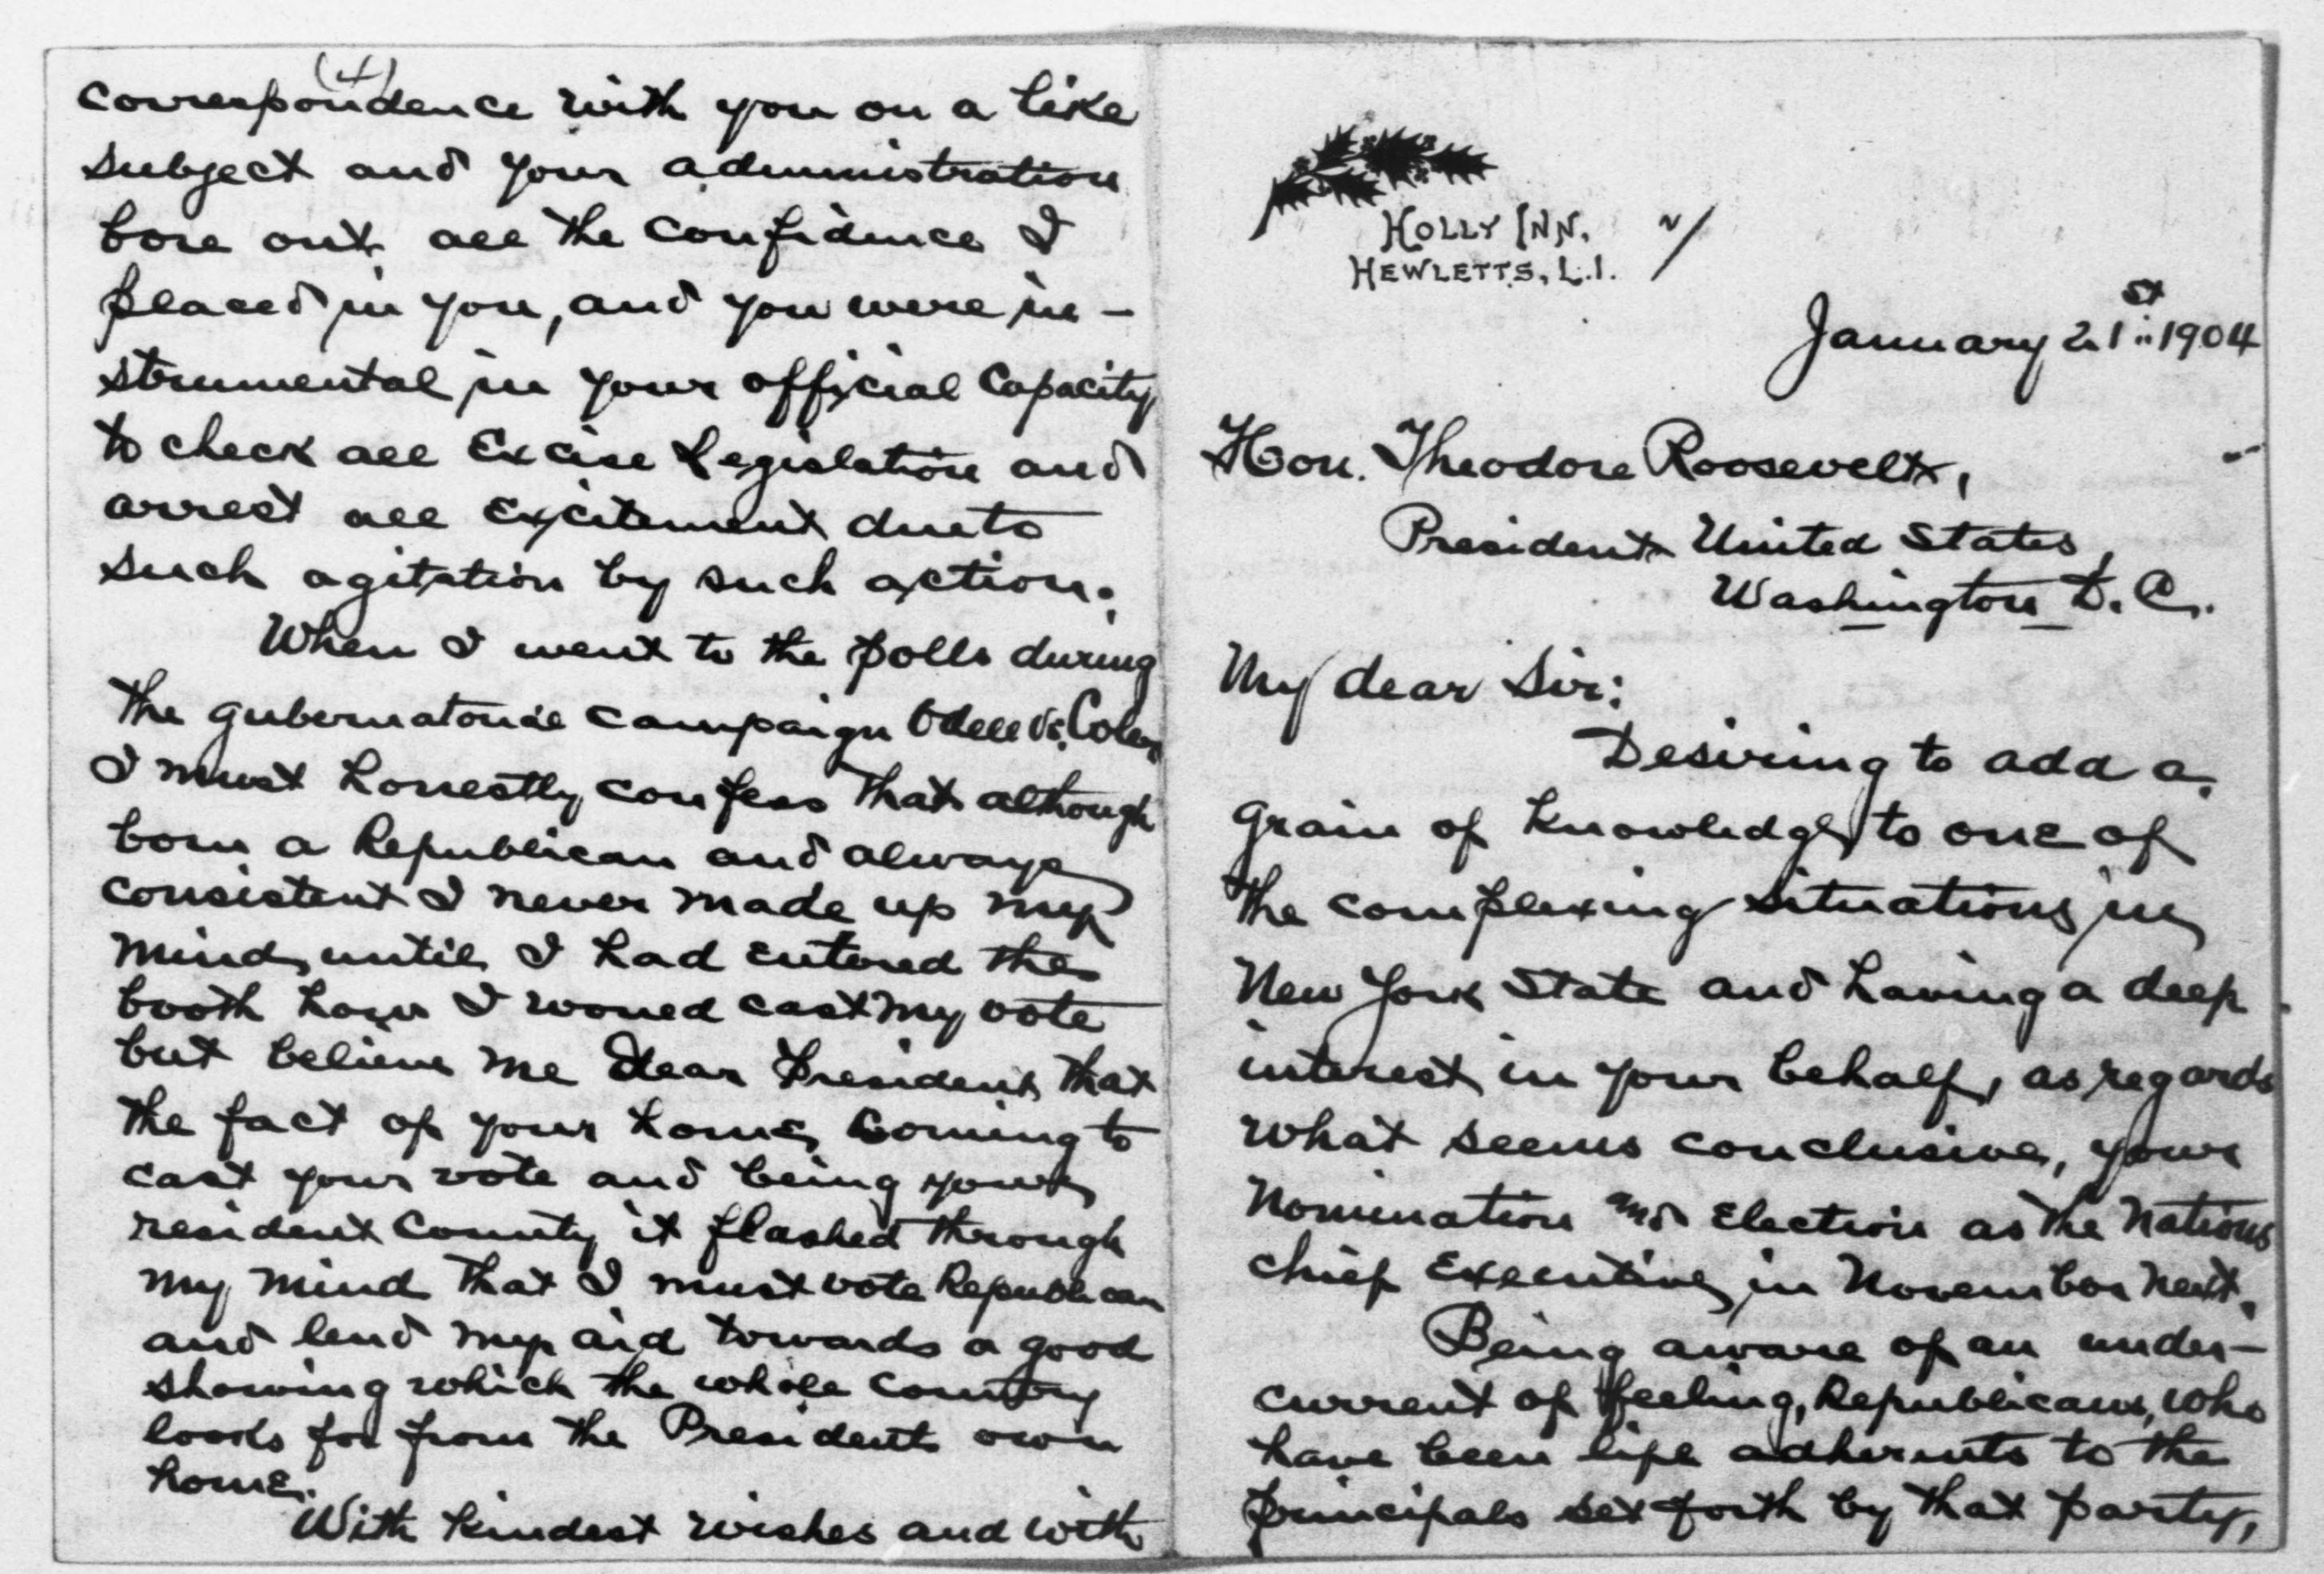 (4)
correspondence with you on a like
subject and your administration
bore out all the confidence I
placed in you, and you were in-
strumental in your official Capacity
to check all Excise Legislation and
arrest all Excitement due to
such agitation by such action.
When I went to the polls during
the gubernatorial campaign Odell vs. Coler,
I must honestly confess that although
born a Republican and always
consistent I never made up my
mind until I had entered the
booth how I would cast my vote
but believe me Dear President that
the fact of your home coming to
cast your vote and being your
resident County it flashed through
my mind that I must vote Republican
and lend my aid towards a good
showing which the whole country
looks for from the Presidents own
home.
With kindest wishes and with
HOLLY INN,
HEWLETTS, L.I.
January 21st 1904
Hon. Theodore Roosevelt,
President United States,
Washington D. C.
My dear Sir:
Desiring to add a
grain of knowledge to one of
the complexing situations in
New York State and having a deep
interest in your behalf, as regards
what seems conclusive, your
Nomination and Election as the Nations
chief Executive in November next.
Being aware of an under-
current of feeling, Republicans, who
have been life adherents to the
principals set forth by that party,